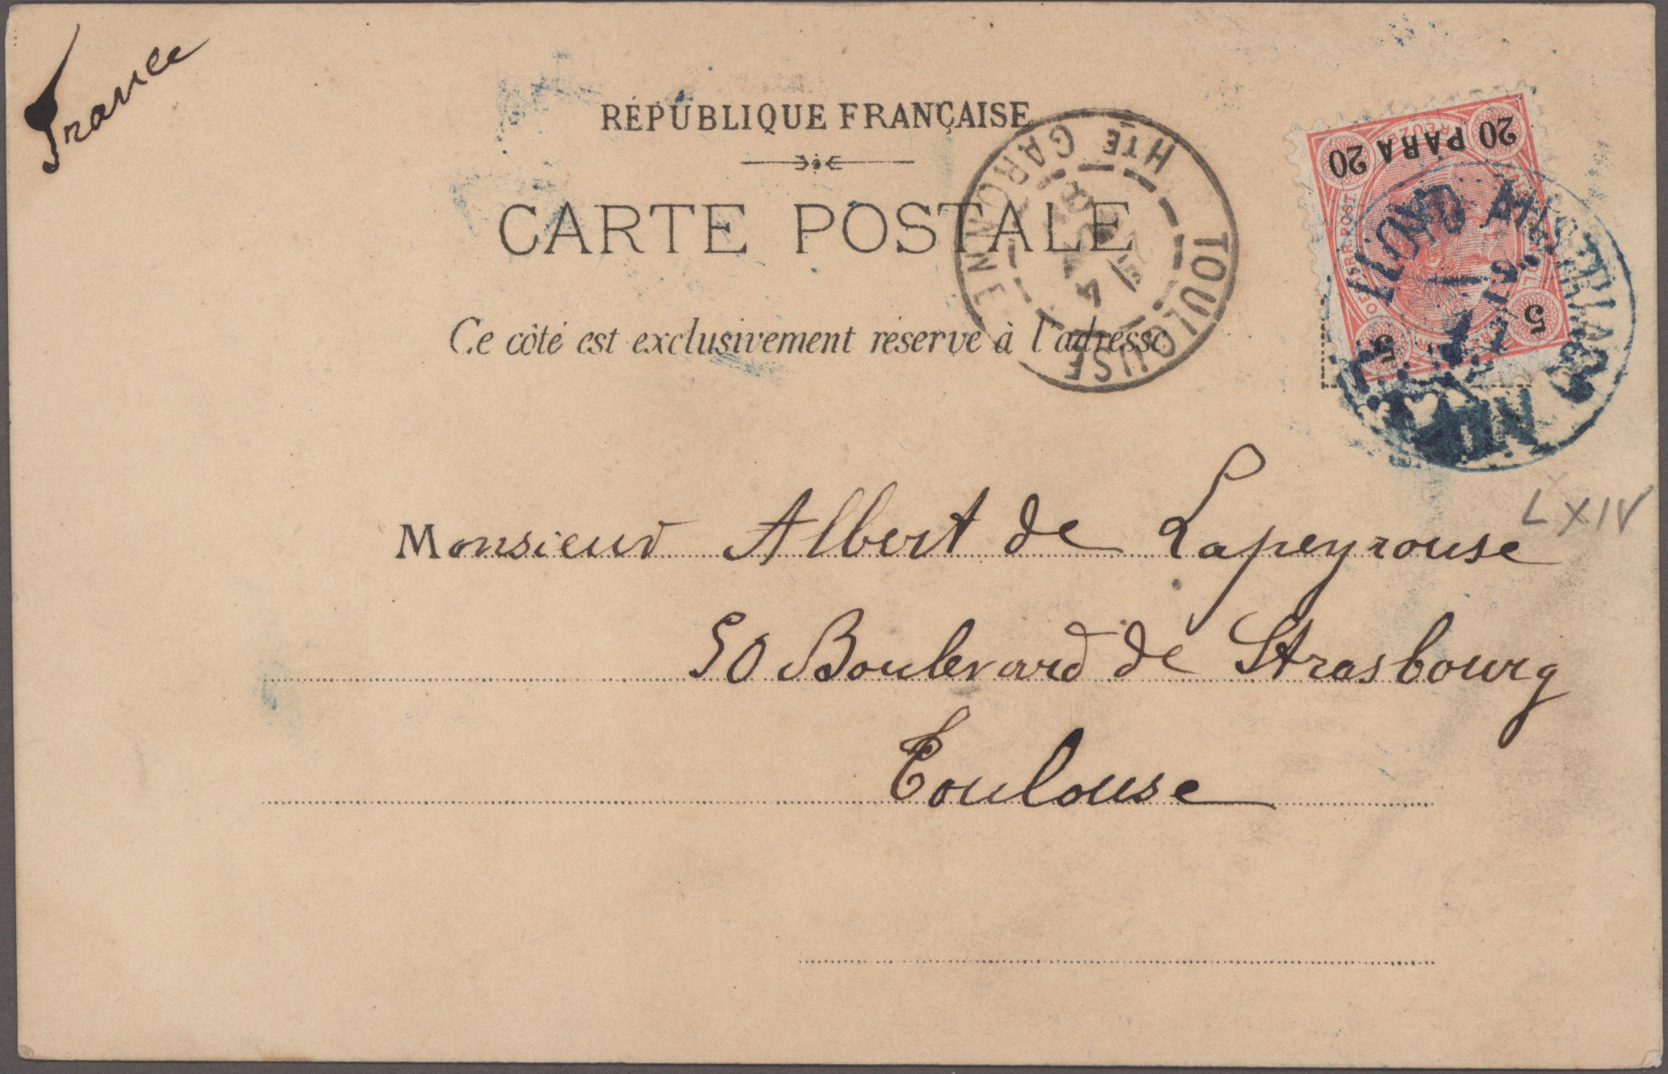 France
RÉPUBLIQUE FRANÇAISE
CARTE POSTALE
Ce côté est exclusivement réservé à l'adresse
TOULOUSE
HTE GARONNE
20 PARA 20
5 5
LLOYD AUSTRIACO
LXIV
Monsieur Albert de Lapeyrouse
50 Boulevard de Strasbourg
Toulouse